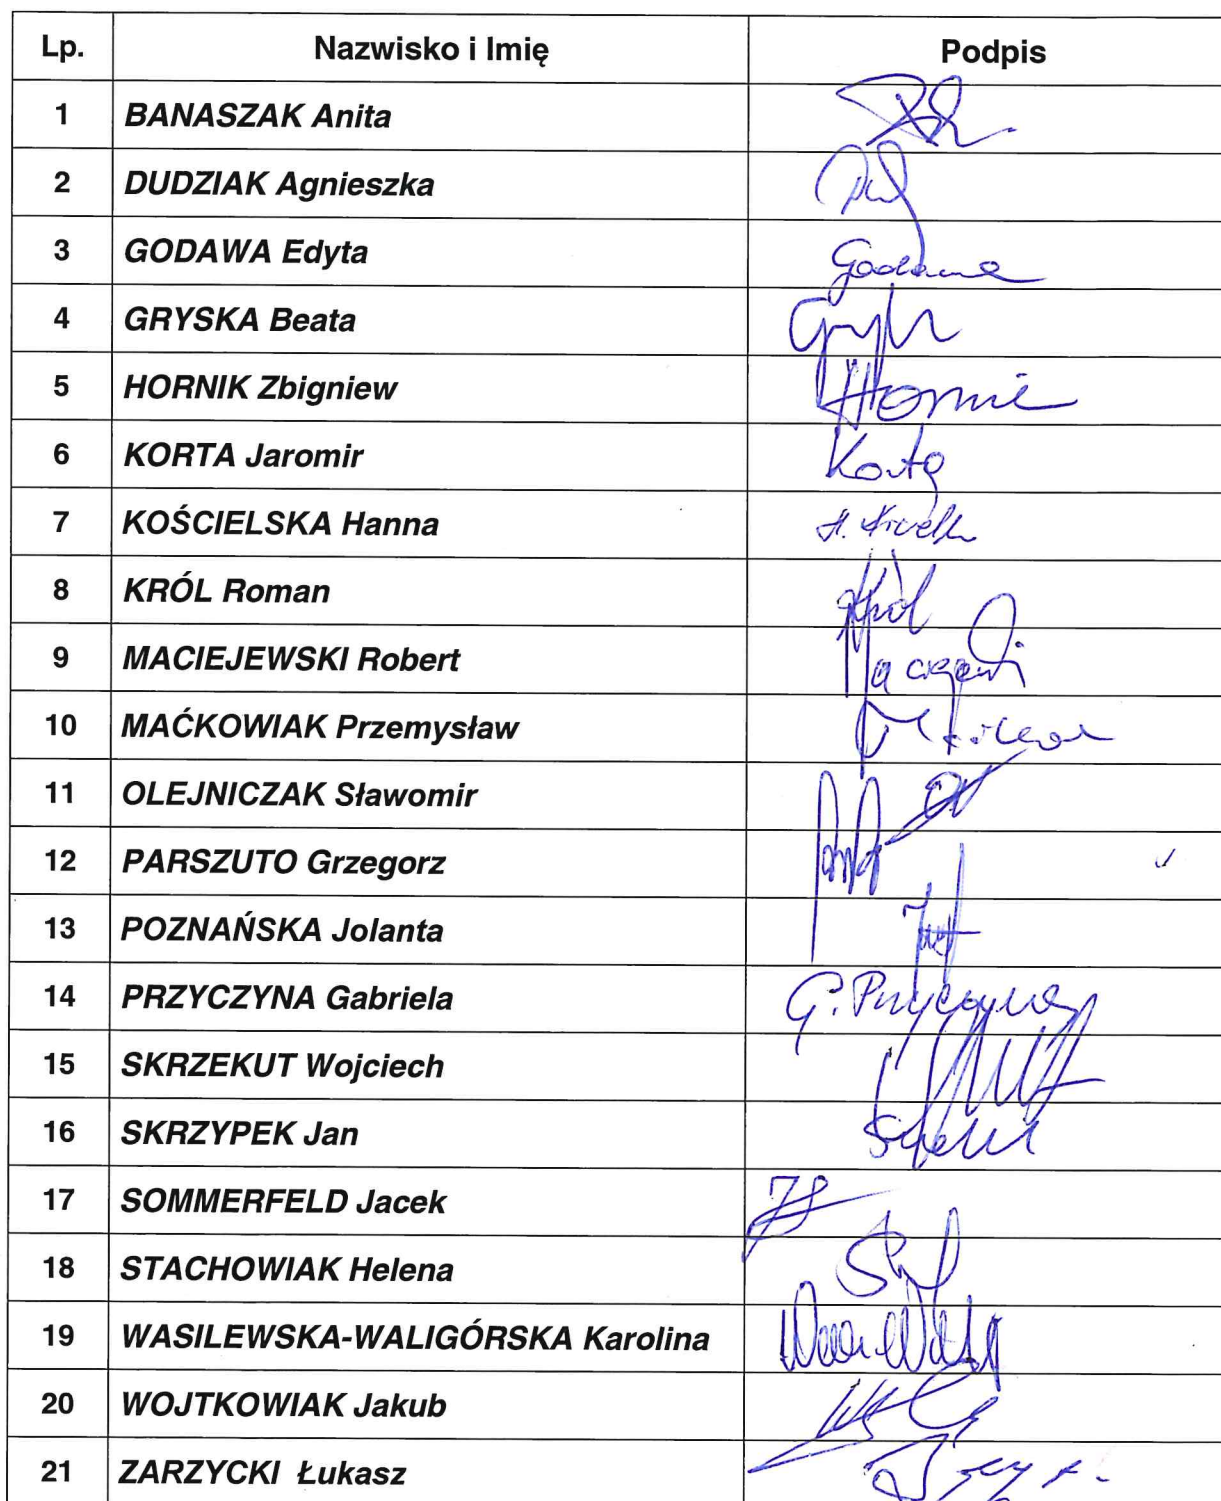 Lp. Nazwisko i Imię Podpis
1 BANASZAK Anita
2 DUDZIAK Agnieszka
3 GODAWA Edyta Godawa
4 GRYSKA Beata
5 HORNIK Zbigniew Hornik
6 KORTA Jaromir Korta
7 KOŚCIELSKA Hanna
8 KRÓL Roman Król
9 MACIEJEWSKI Robert
10 MAĆKOWIAK Przemysław
11 OLEJNICZAK Sławomir
12 PARSZUTO Grzegorz
13 POZNAŃSKA Jolanta
14 PRZYCZYNA Gabriela G. Przyczyna
15 SKRZEKUT Wojciech
16 SKRZYPEK Jan
17 SOMMERFELD Jacek JS
18 STACHOWIAK Helena
19 WASILEWSKA-WALIGÓRSKA Karolina
20 WOJTKOWIAK Jakub
21 ZARZYCKI Łukasz